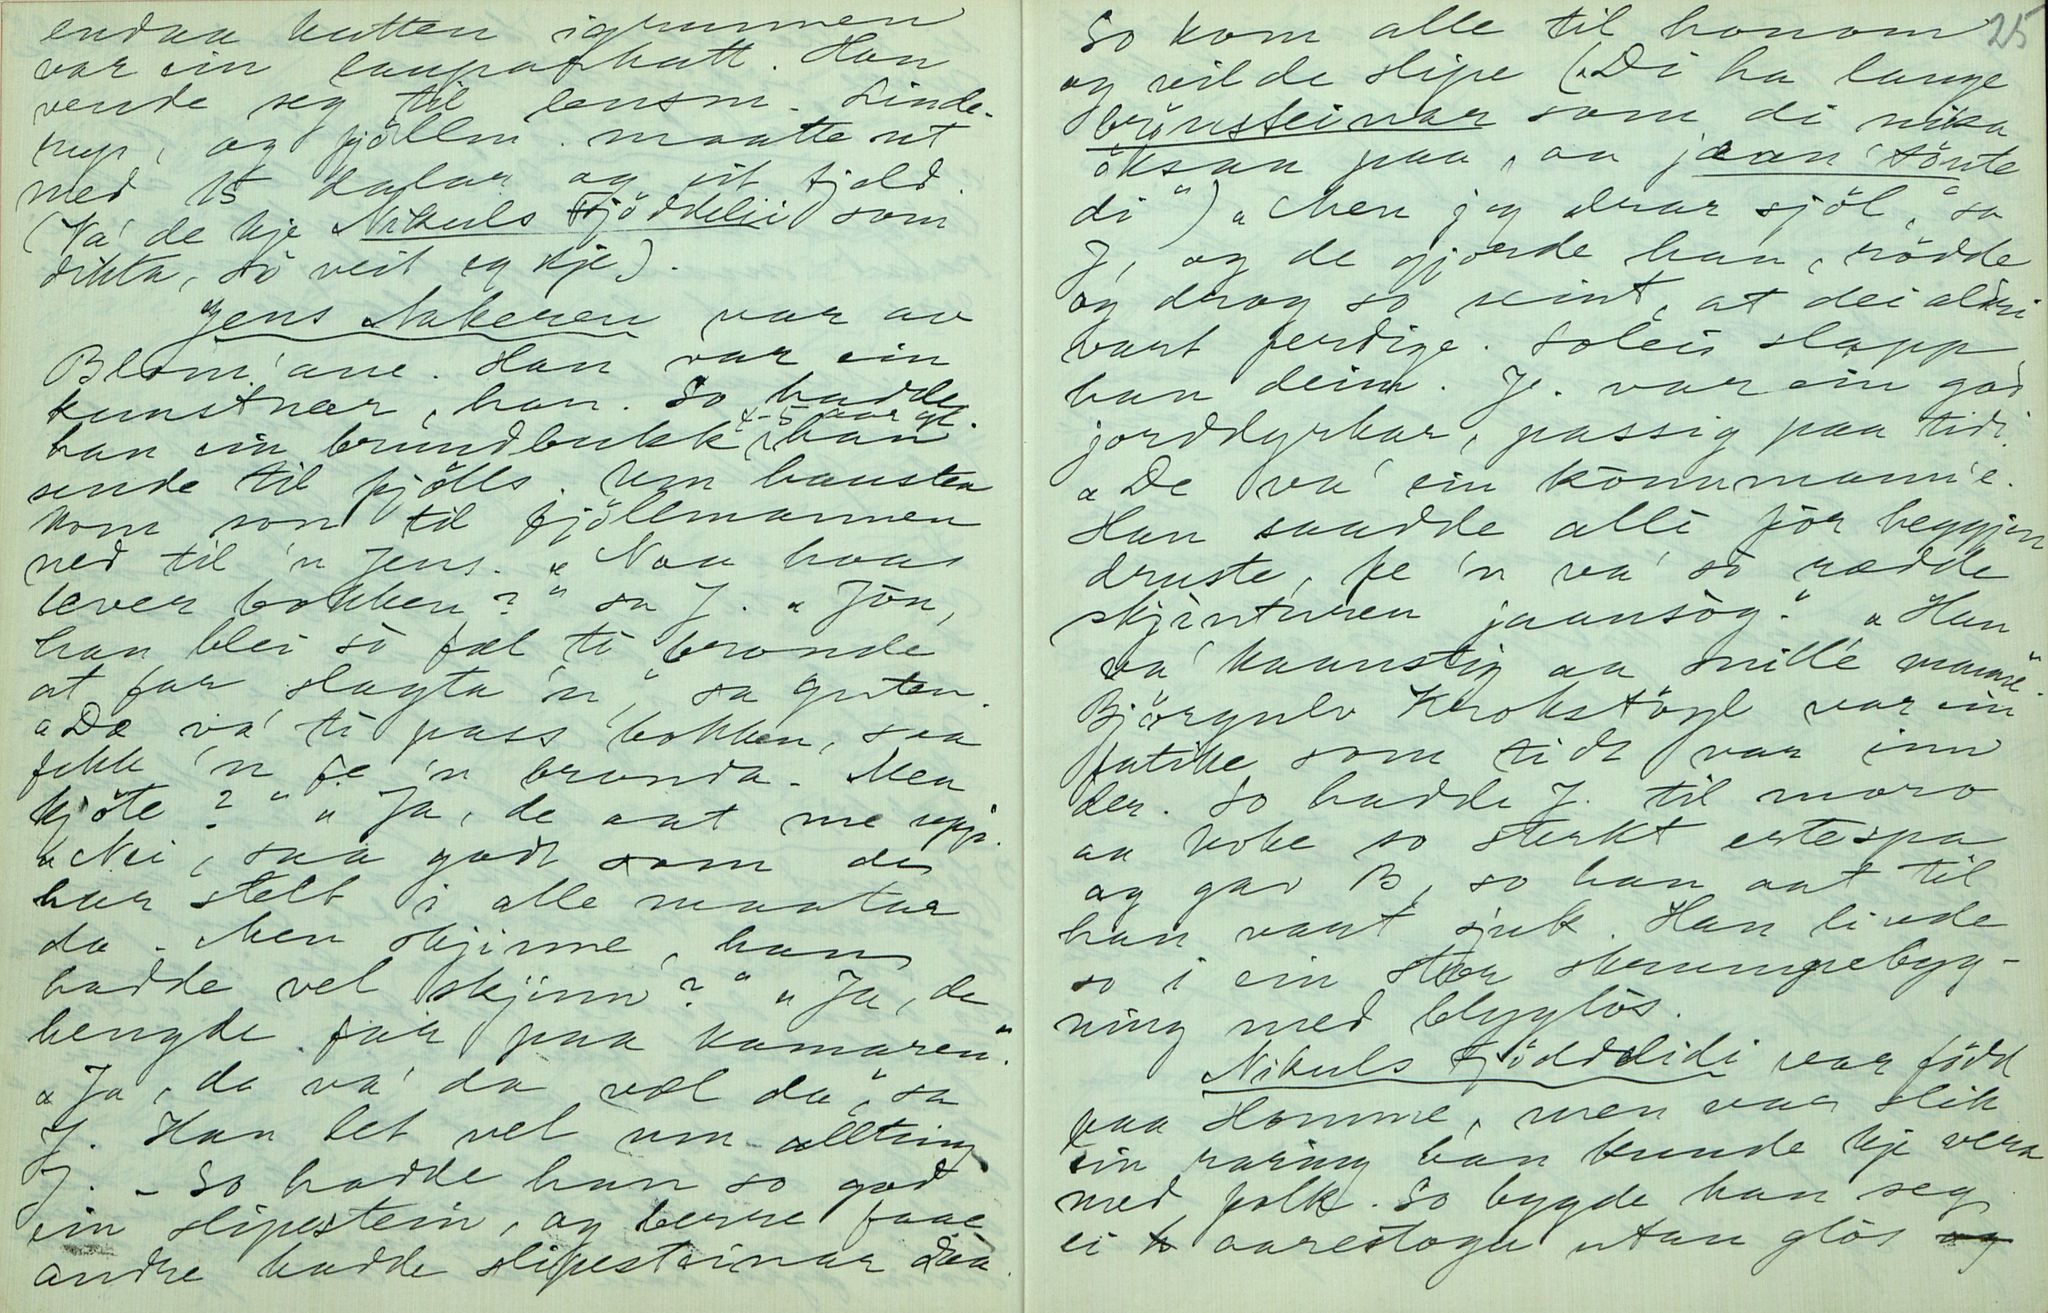 endaa hatten igrunnen
var ein lauparhatt. Han
vende seg til lensm. Linde-
rup, og fjöllm. maatte ut
med 15 dalar og sit fjeld.
(Va' de kje Nikuls Fjöddelii som
dikta, so veit eg kje).
Jens Nakeren var av
Blom'ane. Han var ein
kunstnar, han. So hadde
4-5 aar gl.
han ein brundbukk, han
sende til fjölls. Um hausten
kom son til fjöllmannen
ned til 'n Jens. "Naa haas
lever bokken?" sa J. "Jön,
han blei so fæl ti bronde
at far slagta 'n," sa guten.
"De va' ti pass bokken, saa
fekk 'n fe 'n bronda. Men
kjöte?" "Ja, de aat me upp.
"Nei, saa godt som de
har stelt i alle maatar
da. Men skjinne, han
hadde vel skjinn?" "Ja, de
hengde far paa kamaren".
"Ja, da va' da væl da," sa
J. Han let vel um allting
J. - So hadde han so god
ein slipestein, og berre faae
andre hadde slipesteinar daa.
25
So kom alle til honom
og vilde slipe ("Di ha lange
brönsteinar som di nika
öksan paa, aa jaan tönte
di") "Men jeg drar sjöl," sa
J, og de gjorde han, södde
og drog so seint, at dei aldri
vart ferdige. Soleis slapp
han deim. J. var ein god
jorddyrkar, passig paa tidi.
"De va' ein könnmann'e.
Han saadde alli för heggjen
druste, fe 'n va' so rædde
skjinturen jaansög." "Han
va' kaanstig aa snill'e mann'e".
Björgulv Krokstögl var ein
fatike som tidt var inn
der. So hadde J. til moro
aa koke so sterkt ertespa
og gav B, so han aat til
han vart sjuk. Han livde
so i ein stor skrumpebyg-
ning med blyglös.
Nikuls Fjödddlidi var född
paa Homme, men var slik
ein raring han kunde kje vera
med folk. So bygde han seg
ei aarestogu utan glös og